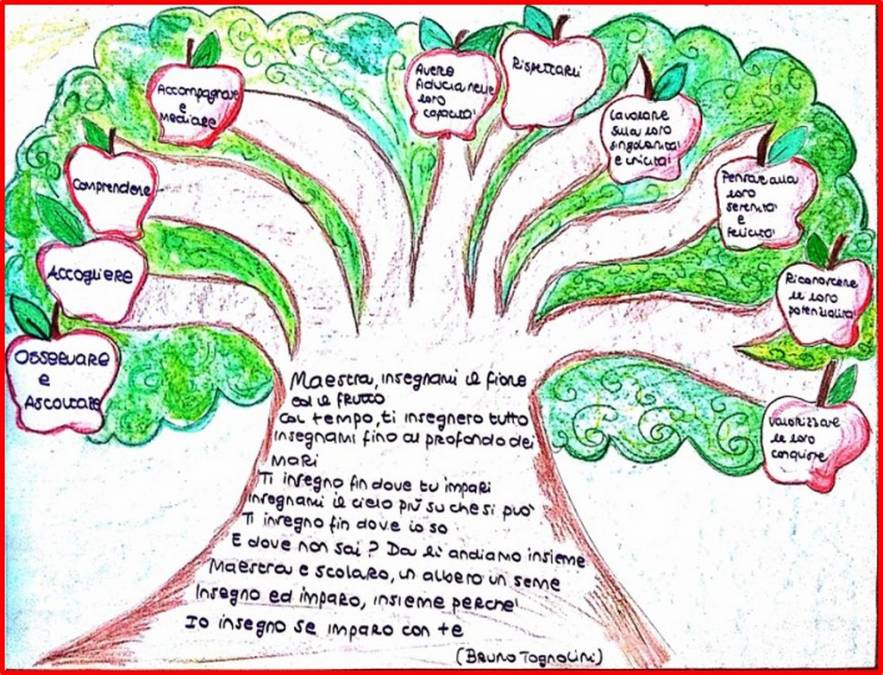 Osservare
e
Ascoltare
Accogliere
Comprendere
Accompagnare
e
Mediare
Avere
fiducia nelle
loro
capacità
Rispettarli
Lavorare
sulla loro
singolarità
e unicità
Pensare alla
loro
serenità
e
felicità
Riconoscere
le loro
potenzialità
Valorizzare
le loro
conquiste
Maestra, insegnami il fiore
ed il frutto
Col tempo, ti insegnerò tutto
Insegnami fino al profondo dei
mari
Ti insegno fin dove tu impari
Insegnami il cielo più su che si può
Ti insegno fin dove io so
E dove non sai? Da lì andiamo insieme
Maestra e scolaro, un albero un seme
Insegno ed imparo, insieme perché
Io insegno se imparo con te
(Bruno Tognolini)